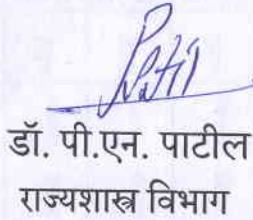 डॉ. पी.एन. पाटील
राज्यशास्त्र विभाग